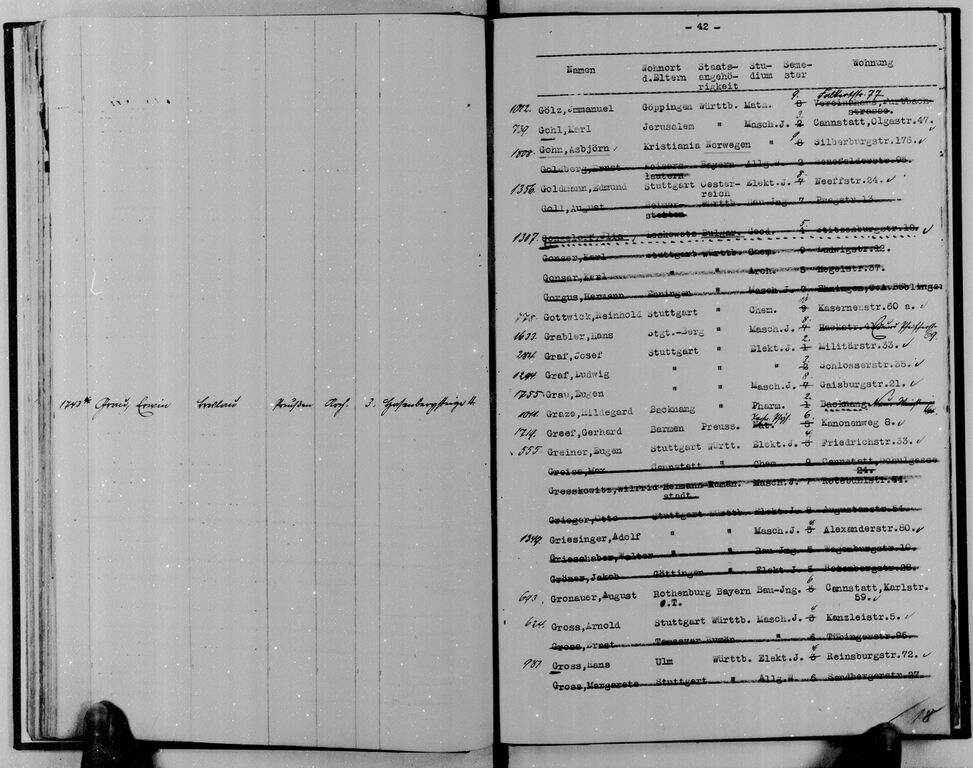 1743 Grau, Erwin Breslau Preußen Arch. 3. Hasenbergsteige
- 42 -
Namen Wohnort d.Eltern Staatsangehörigkeit Studium Semester Wohnung
1012. Gölz, Immanuel Göppingen Württb. Math. 9. 8 Falkertstr. 77
Vereinshaus, Furtbach-
strasse.
739. Gohl, Karl Jerusalem " Masch.J. 3. 2 Cannstatt, Olgastr.47.
1808. Gohn, Asbjörn Kristiania Norwegen " 9 8 Silberburgstr.176.
Goldberg, Ernst Kaisers- Bayern Allg.W. 2 Senefelderstr.95.
lautern
1356. Goldmann, Edmund Stuttgart Oester- Elekt.J. 8. 4 Neeffstr.24.
reich
Goll, August Württb. Bau-Jng. 7
1307. Geod. 5 4 Stitzenburgstr.18.
Gonser, Karl Stuttgart Württb. Chem. 9 Ludwigstr.12.
Gonser, Karl " " Arch. 5 Hegelstr.37.
Gorgus, Hermann Ehningen " Masch.J. Ehningen, O.A.Böblingen
778. Gottwick, Reinhold Stuttgart " Chem. Kasernenstr.60 a.
1633. Grabler, Hans Stgt.-Berg " Masch.J. 4
69.
284. Graf, Josef Stuttgart " Elekt.J. 2. 1 Militärstr.33.
1294. Graf, Ludwig " " " 3. 2 Schlosserstr.38.
1755. Grau, Eugen " " Masch.J. 8 7 Gaisburgstr.21.
1011. Graze, Hildegard Backnang " Pharm. 2. 1 Backnang
1719. Greef, Gerhard Barmen Preuss. 6. 5 Kanonenweg 8.
555. Greiner, Eugen Stuttgart Württ. Elekt.J. 4 3 Friedrichstr.33.
Greiss, Max Cannstatt " Chem. 9 Cannstatt, Schulgasse
24.
Gresskowitz, Wilfrid Hermann- Rumän. Masch.J. 7 Rotebühlstr.44.
stadt
Grieger, Otto Stuttgart Württb. Elekt.J. 8 Augustenstr.54.
1349. Griesinger, Adolf " " Masch.J. 4 3 Alexanderstr.80.
Griesshaber, Walter " " Bau-Jng. 5 Wagenburgstr.10.
Gröner, Jakob Göttingen " Elekt.J. 5 Rotenbergstr.28.
693. Gronauer, August Rothenburg Bayern Bau-Jng. 6 5 Cannstatt, Karlstr.
O.T. 59.
624. Gross, Arnold Stuttgart Württb. Masch.J. 4 3 Kanzleistr.5.
Gross, Ernst Temesvar Rumän. " 6 Tübingerstr.95.
987. Gross, Hans Ulm Württb. Elekt.J. 4 3 Reinsburgstr.72.
Gross, Margarete Stuttgart " Allg.W. 6 Sandbergerstr.27.
18